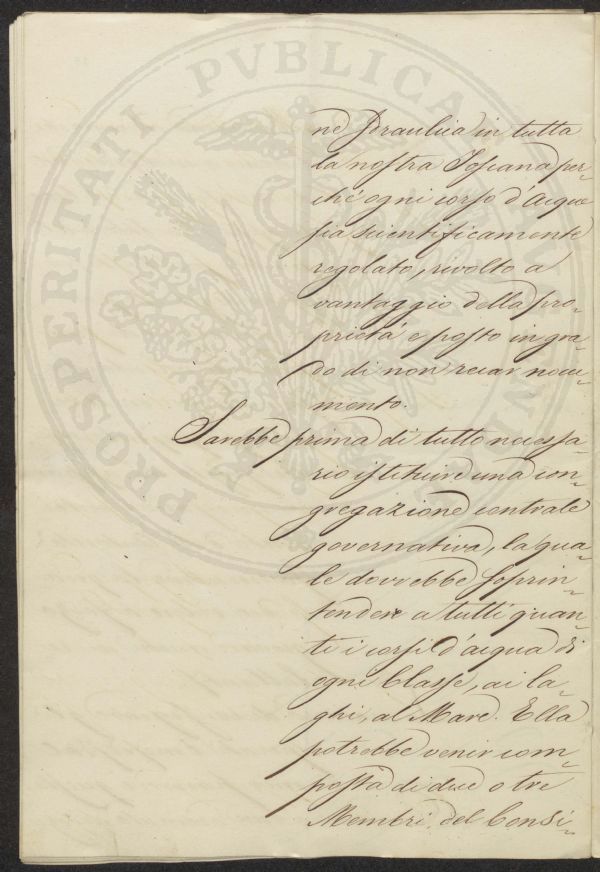 PROSPERITATI PVBLICAE
ne Idraulica in tutta
la nostra Toscana per-
chè ogni corso d'Acque
sia scientificamente
regolato, rivolto a
vantaggio della pro-
prietà e posto in gra-
do di non recar nocu-
mento.
Sarebbe prima di tutto necessa-
rio istituire una con-
gregazione centrale
governativa, la qua-
le dovrebbe soprin-
tendere a tutti quan-
ti i corsi d'acqua di
ogni Classe, ai la-
ghi, al Mare. Ella
potrebbe venir com-
posta di due o tre
Membri del Consi-